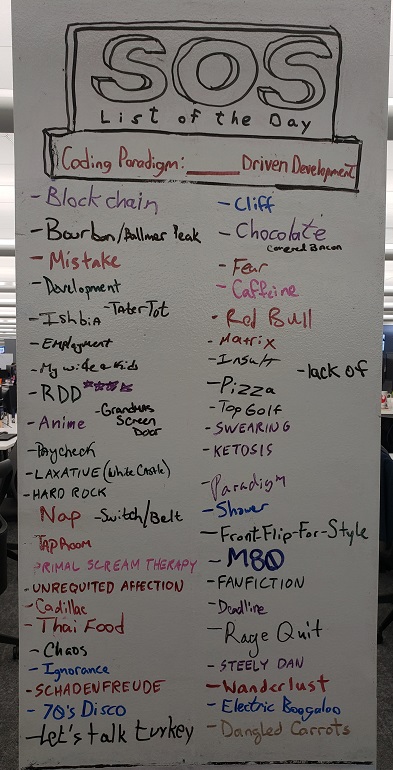 SOS
List of the Day
Coding Paradigm: ______ Driven Development
- Blockchain
- Bourbon/Ballmer Peak
- Mistake
- Development
- Ishbia - Tater Tot
- Employment
- My wife & Kids
- RDD ****
- Anime - Grandma's Screen Door
- Paycheck
- LAXATIVE (White Castle)
- HARD ROCK
Nap - Switch/Belt
TAP ROOM
PRIMAL SCREAM THERAPY
- UNREQUITED AFFECTION
- Cadillac
- Thai Food
- Chaos
- Ignorance
- SCHADENFREUDE
- 70's Disco
- Let's talk turkey
- Cliff
- Chocolate
covered Bacon
- Fear
- Caffeine
- Red Bull
- Matrix
- Insult
- lack of
- Pizza
- Top Golf
- SWEARING
- KETOSIS
- Paradigm
- Shower
- Front-Flip-For-Style
- M80
- FANFICTION
- Deadline
- Rage Quit
- STEELY DAN
- Wanderlust
- Electric Boogaloo
- Dangled Carrots